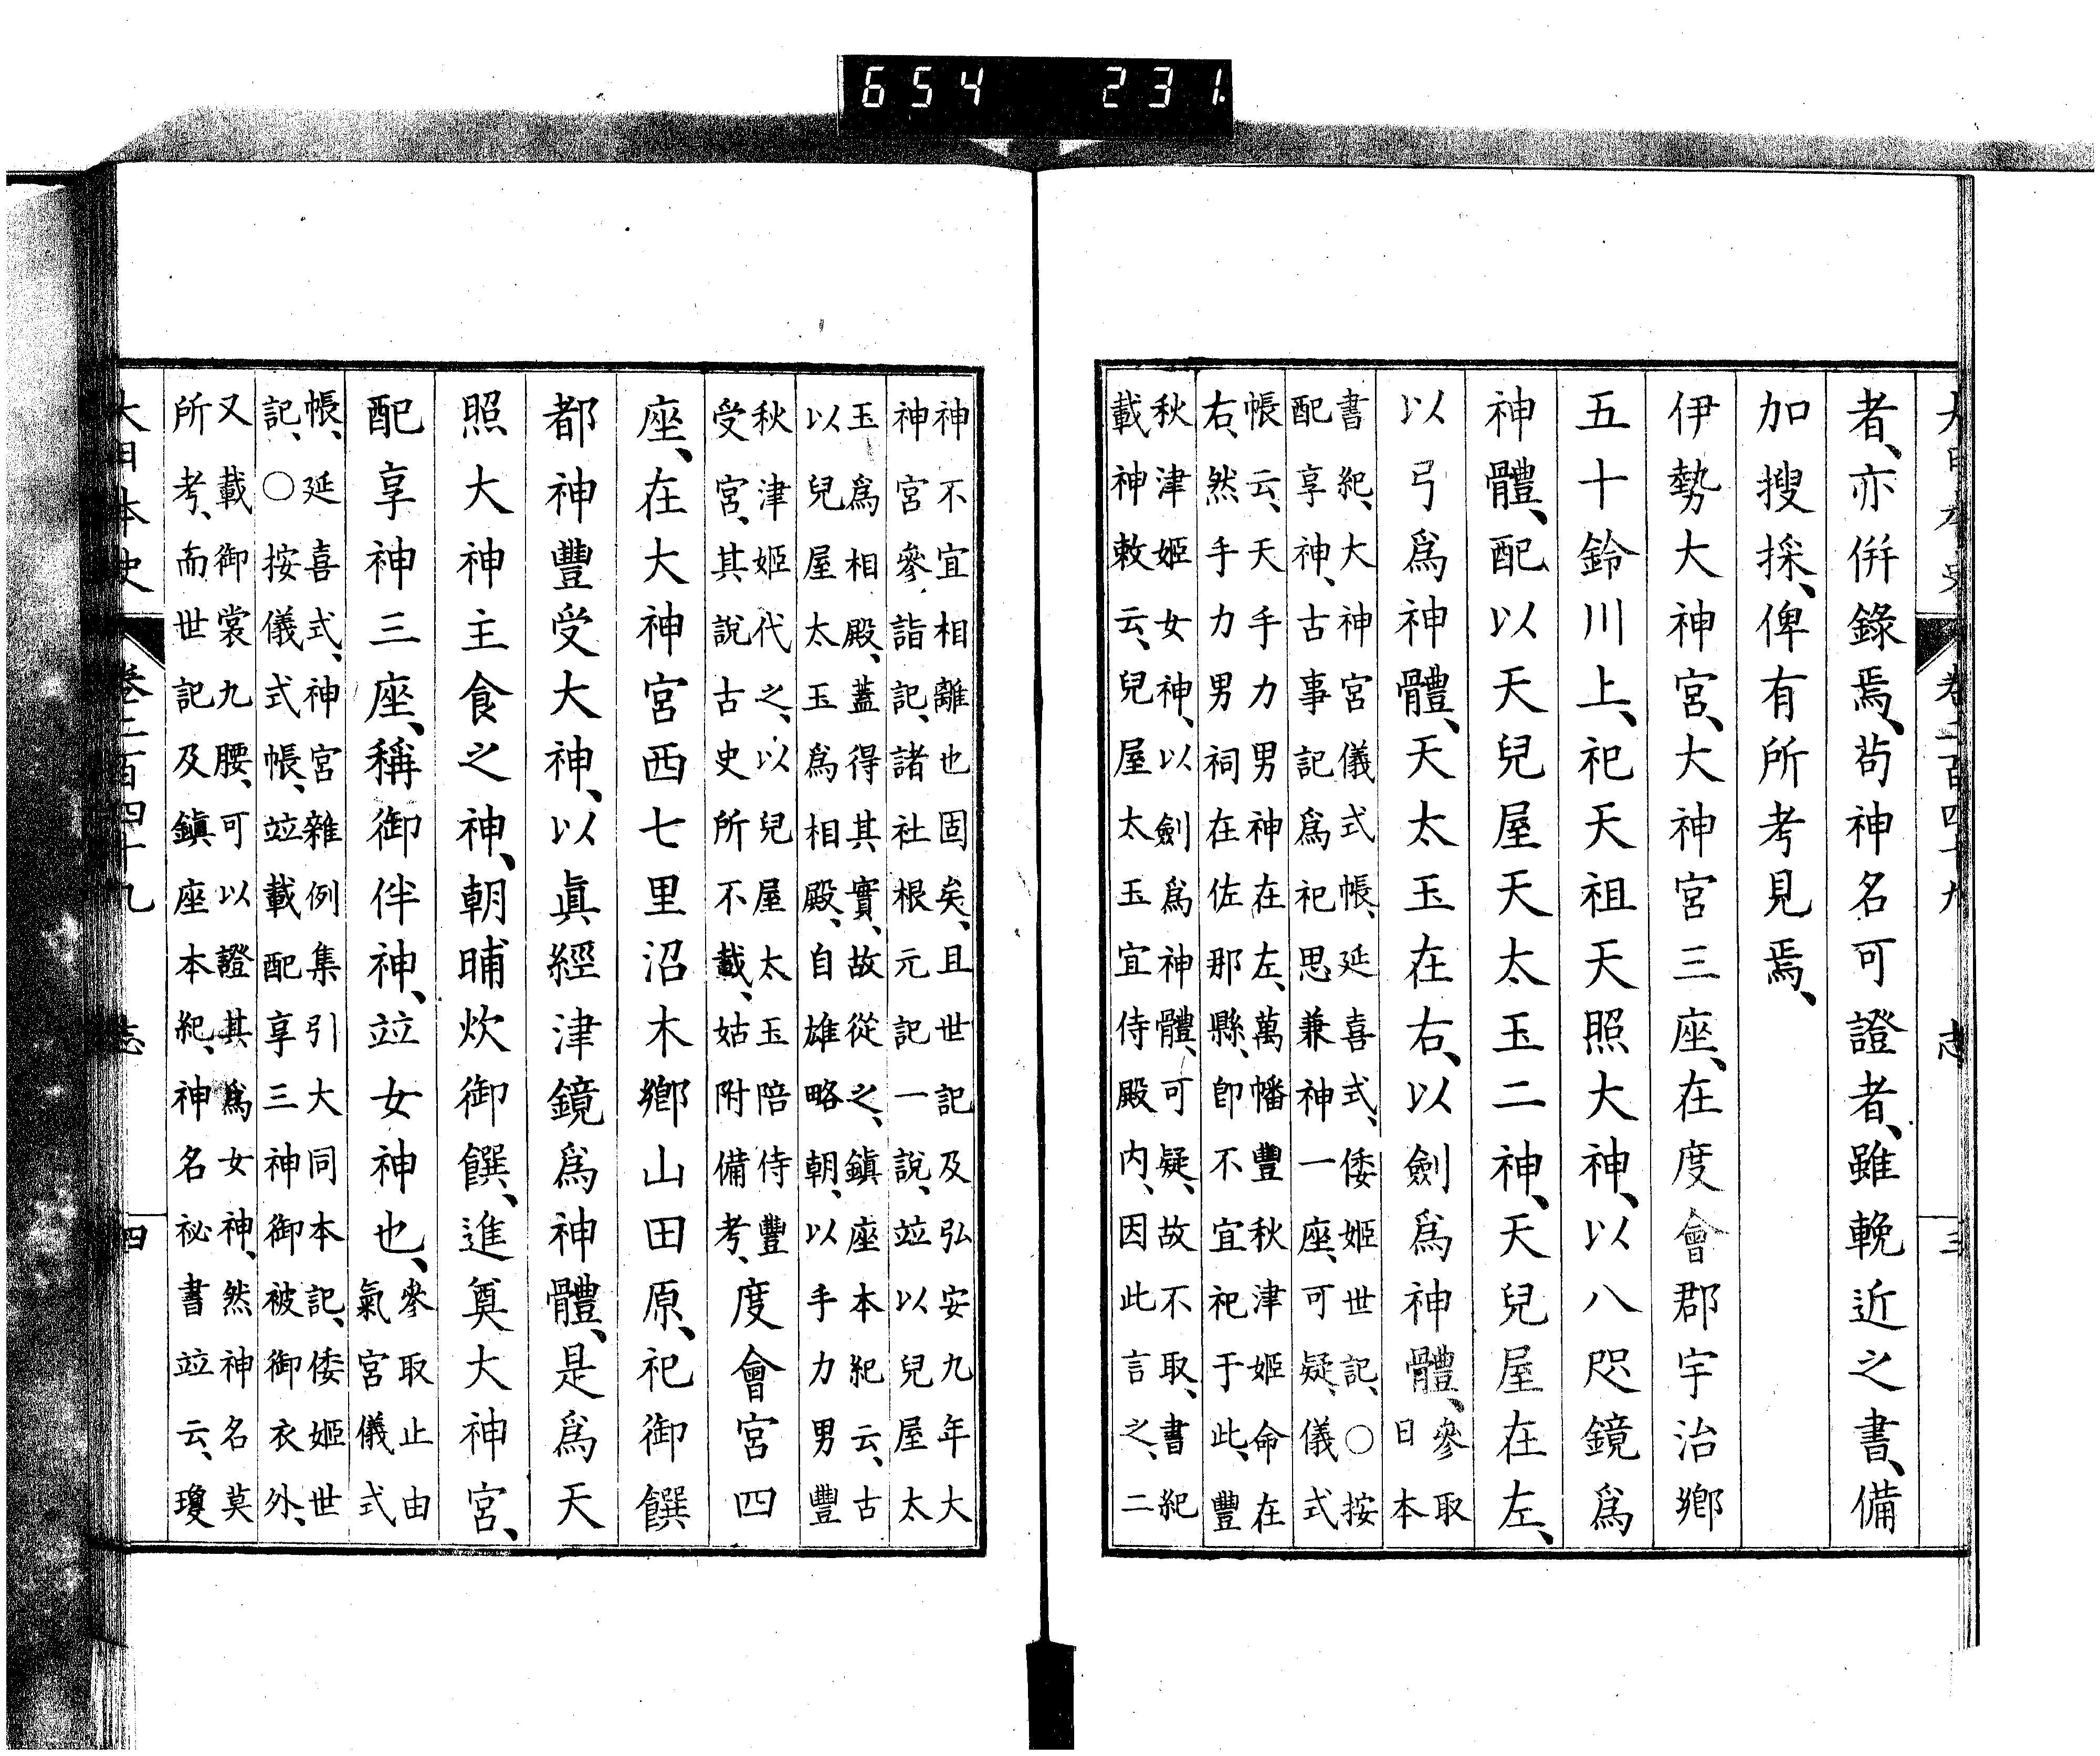 654 231.
大日本史 卷二百四十九 志 三
者、亦併錄焉、苟神名可證者、雖輓近之書、備
加搜採、俾有所考見焉、
伊勢大神宮、大神宮三座、在度會郡宇治鄉
五十鈴川上、祀天祖天照大神、以八咫鏡爲
神體、配以天兒屋天太玉二神、天兒屋在左、
以弓爲神體、天太玉在右、以劍爲神體、參取
日本
書紀、大神宮儀式帳、延喜式、倭姬世記、○按
配享神、古事記爲祀思兼神一座、可疑、儀式
帳云、天手力男神在左、萬幡豐秋津姬命在
右、然手力男祠在佐那縣、卽不宜祀于此、豐
秋津姬女神、以劍爲神體、可疑、故不取、書紀
載神敕云、兒屋太玉宜侍殿内、因此言之、二
神不宜相離也固矣、且世記及弘安九年大
神宮參詣記、諸社根元記一說、竝以兒屋太
玉爲相殿、蓋得其實、故從之、鎭座本紀云、古
以兒屋太玉爲相殿、自雄略朝、以手力男豐
秋津姬代之、以兒屋太玉陪侍豐
受宮、其說古史所不載、姑附備考、度會宮四
座、在大神宮西七里沼木鄉山田原、祀御饌
都神豐受大神、以眞經津鏡爲神體、是爲天
照大神主食之神、朝晡炊御饌、進奠大神宮、
配享神三座、稱御伴神、竝女神也、參取止由
氣宮儀式
帳、延喜式、神宮雜例集引大同本記、倭姬世
記、○按儀式帳、竝載配享三神御被御衣外、
又載御裳九腰、可以證其爲女神、然神名莫
所考、而世記及鎭座本紀、神名祕書竝云、瓊
大日本史 卷二百四十九 志 四